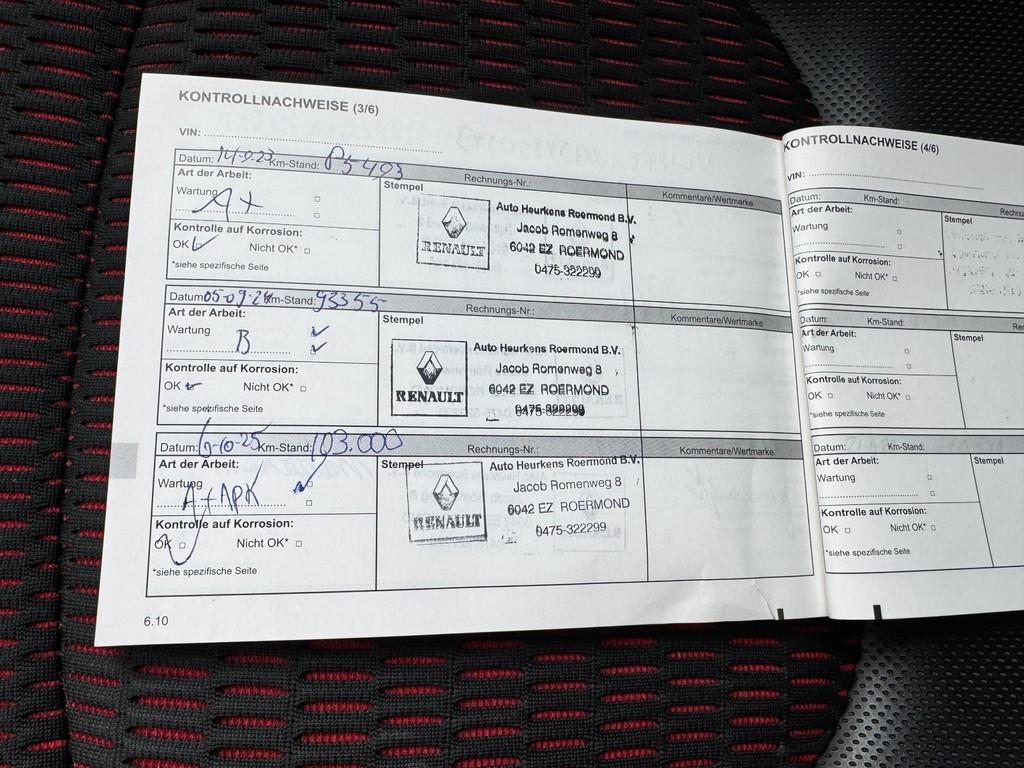 KONTROLLNACHWEISE (3/6)
VIN:
Datum: Km-Stand: 85403 Rechnungs-Nr.: Kommentare/Wertmarke
Art der Arbeit:
Wartung
Kontrolle auf Korrosion:
OK Nicht OK*
*siehe spezifische Seite
Stempel
RENAULT
Auto Heurkens Roermond B.V.
Jacob Romenweg 8
6042 EZ ROERMOND
0475-322299
Datum: 05-09-24 Km-Stand: 93355 Rechnungs-Nr.: Kommentare/Wertmarke
Art der Arbeit:
Wartung
B
Kontrolle auf Korrosion:
OK Nicht OK*
*siehe spezifische Seite
Stempel
RENAULT
Auto Heurkens Roermond B.V.
Jacob Romenweg 8
6042 EZ ROERMOND
0475-322299
Datum: Km-Stand: 103.000 Rechnungs-Nr.: Kommentare/Wertmarke
Art der Arbeit:
Wartung
A + APK
Kontrolle auf Korrosion:
OK Nicht OK*
*siehe spezifische Seite
Stempel
RENAULT
Auto Heurkens Roermond B.V.
Jacob Romenweg 8
6042 EZ ROERMOND
0475-322299
6.10
KONTROLLNACHWEISE (4/6)
VIN:
Datum: Km-Stand:
Art der Arbeit:
Wartung
Kontrolle auf Korrosion:
OK Nicht OK*
*siehe spezifische Seite
Stempel
Datum: Km-Stand:
Art der Arbeit:
Wartung
Kontrolle auf Korrosion:
OK Nicht OK*
*siehe spezifische Seite
Stempel
Datum: Km-Stand:
Art der Arbeit:
Wartung
Kontrolle auf Korrosion:
OK Nicht OK*
*siehe spezifische Seite
Stempel